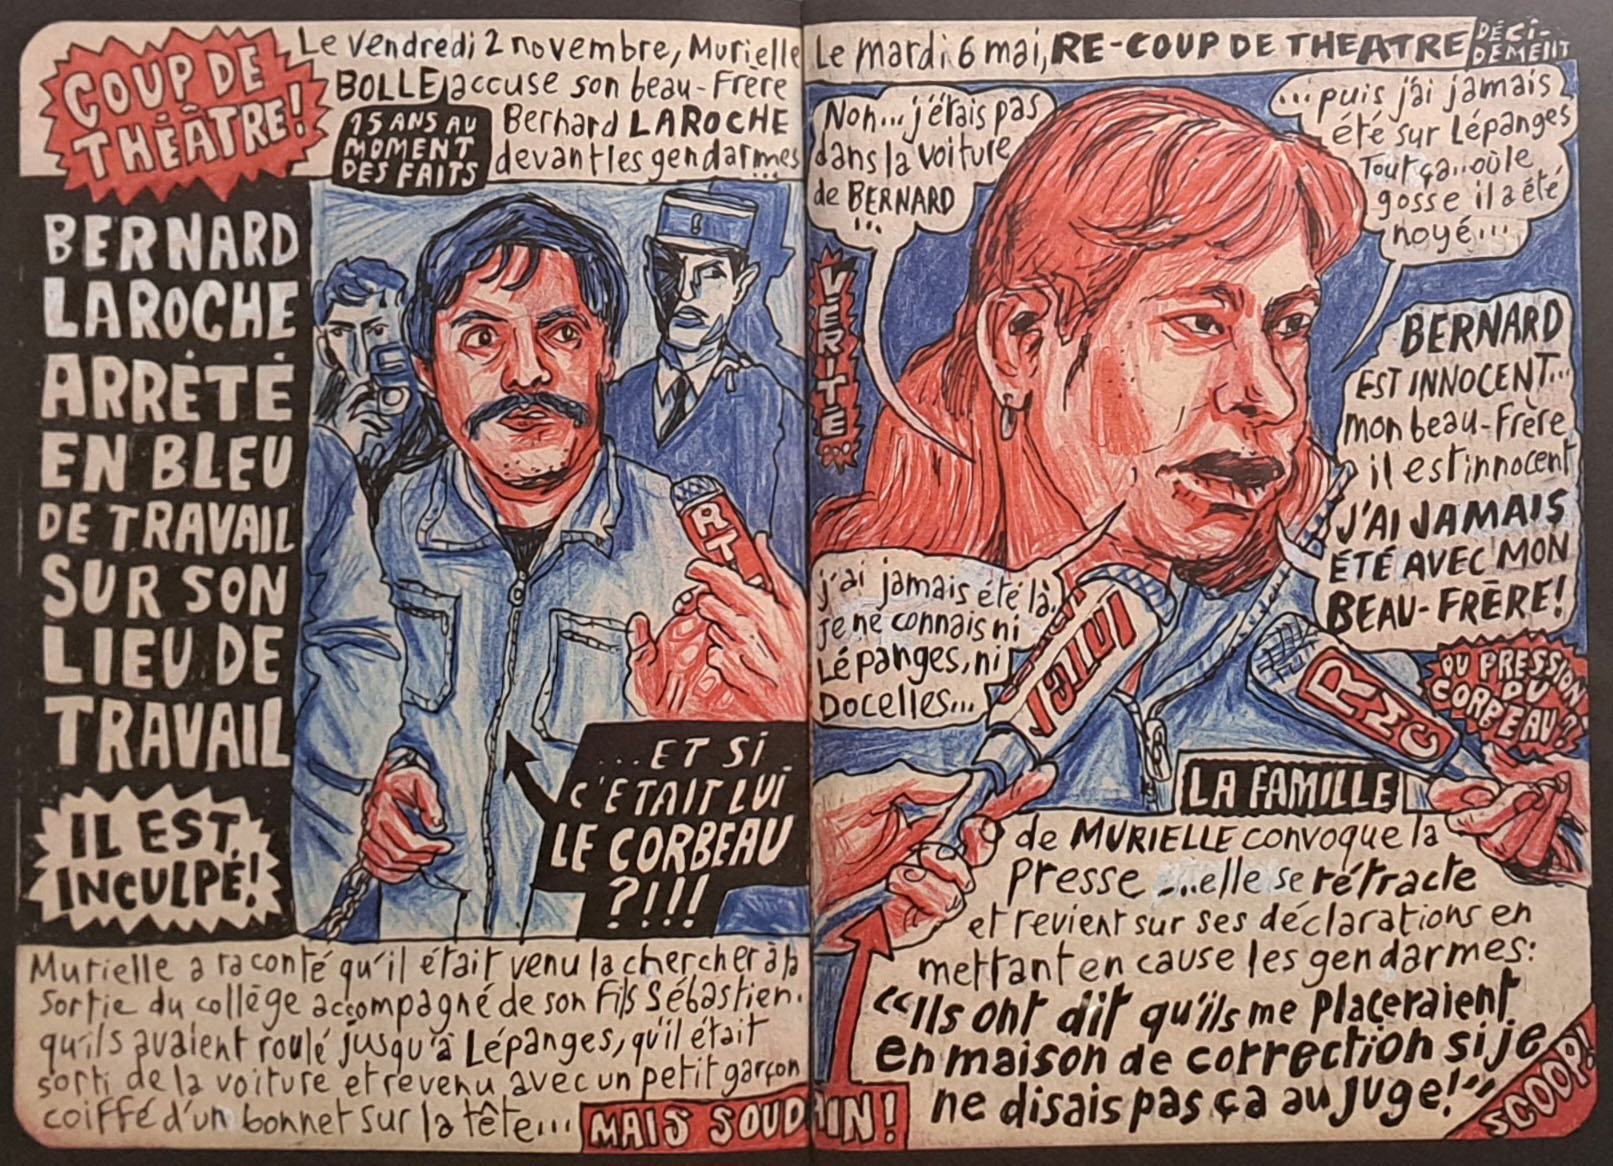 COUP DE
THÉÂTRE!
Le vendredi 2 novembre, Murielle
BOLLE accuse son beau-frère
Bernard LAROCHE
devant les gendarmes
15 ANS AU
MOMENT
DES FAITS
BERNARD
LAROCHE
ARRÊTÉ
EN BLEU
DE TRAVAIL
SUR SON
LIEU DE
TRAVAIL
IL EST
INCULPÉ!
RTL
...ET SI
C'ÉTAIT LUI
LE CORBEAU
?!!!
Murielle a raconté qu'il était venu la chercher à la
sortie du collège accompagné de son fils Sébastien.
qu'ils avaient roulé jusqu'à Lépanges, qu'il était
sorti de la voiture et revenu avec un petit garçon
coiffé d'un bonnet sur la tête...
MAIS SOUDAIN!
Le mardi 6 mai, RE-COUP DE THEATRE
DÉCI-
DÉMENT
Non... j'étais pas
dans la voiture
de BERNARD
...
...puis j'ai jamais
été sur Lépanges
Tout ça.. où le
gosse il a été
noyé...
VÉRITÉ...
BERNARD
EST INNOCENT...
mon beau-frère
il est innocent
J'AI JAMAIS
ÉTÉ AVEC MON
BEAU-FRÈRE!
j'ai jamais été là.
je ne connais ni
Lépanges, ni
Docelles...
INTER
RMC
OU PRESSION
DU
CORBEAU?
LA FAMILLE
de MURIELLE convoque la
presse ...elle se rétracte
et revient sur ses déclarations en
mettant en cause les gendarmes:
"Ils ont dit qu'ils me placeraient
en maison de correction si je
ne disais pas ça au juge!"
SCOOP!